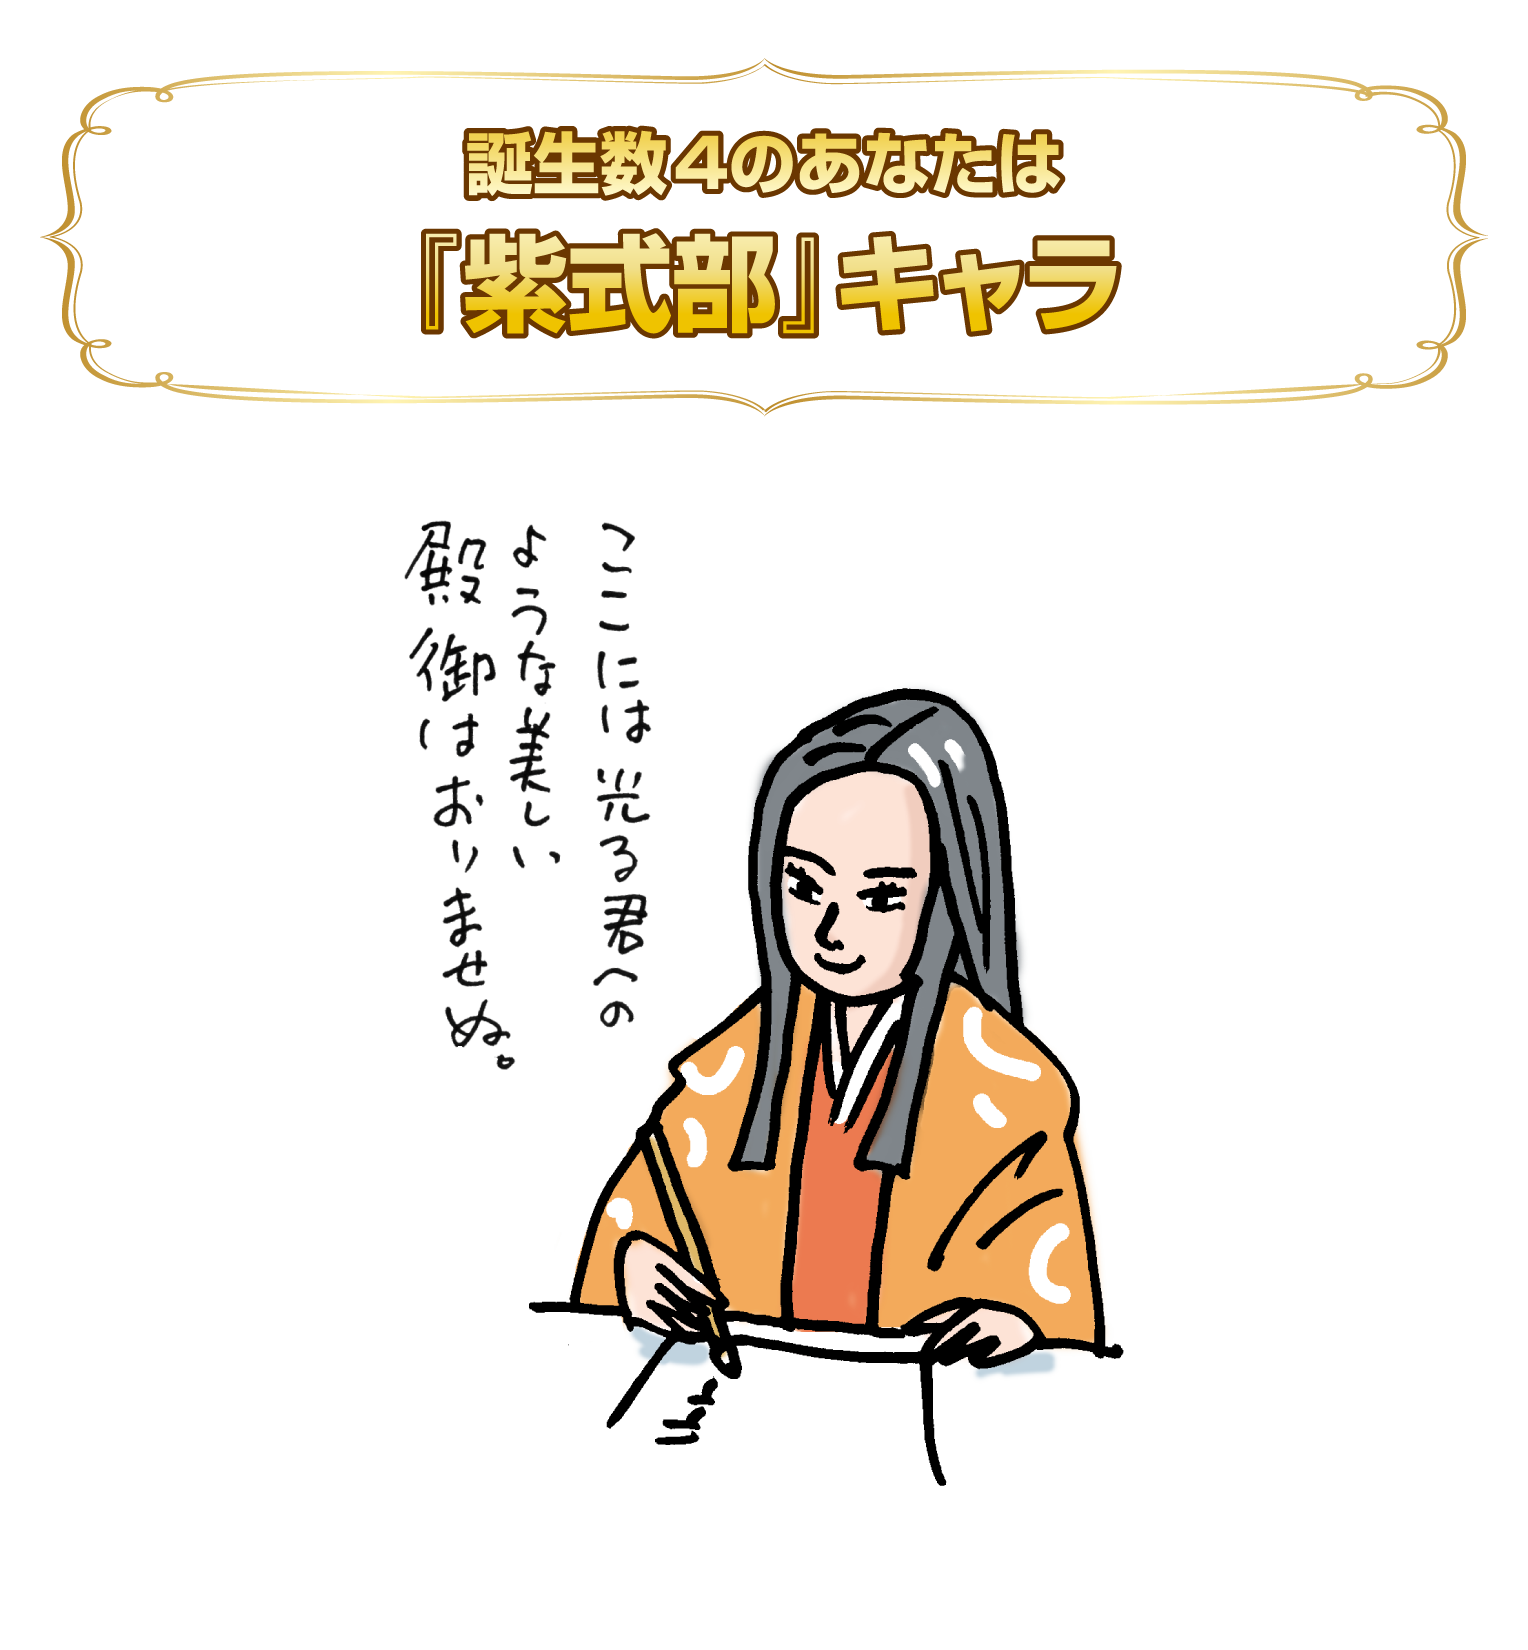 誕生数4のあなたは
『紫式部』キャラ
ここには光る君への
ような美しい
殿御はおりませぬ。